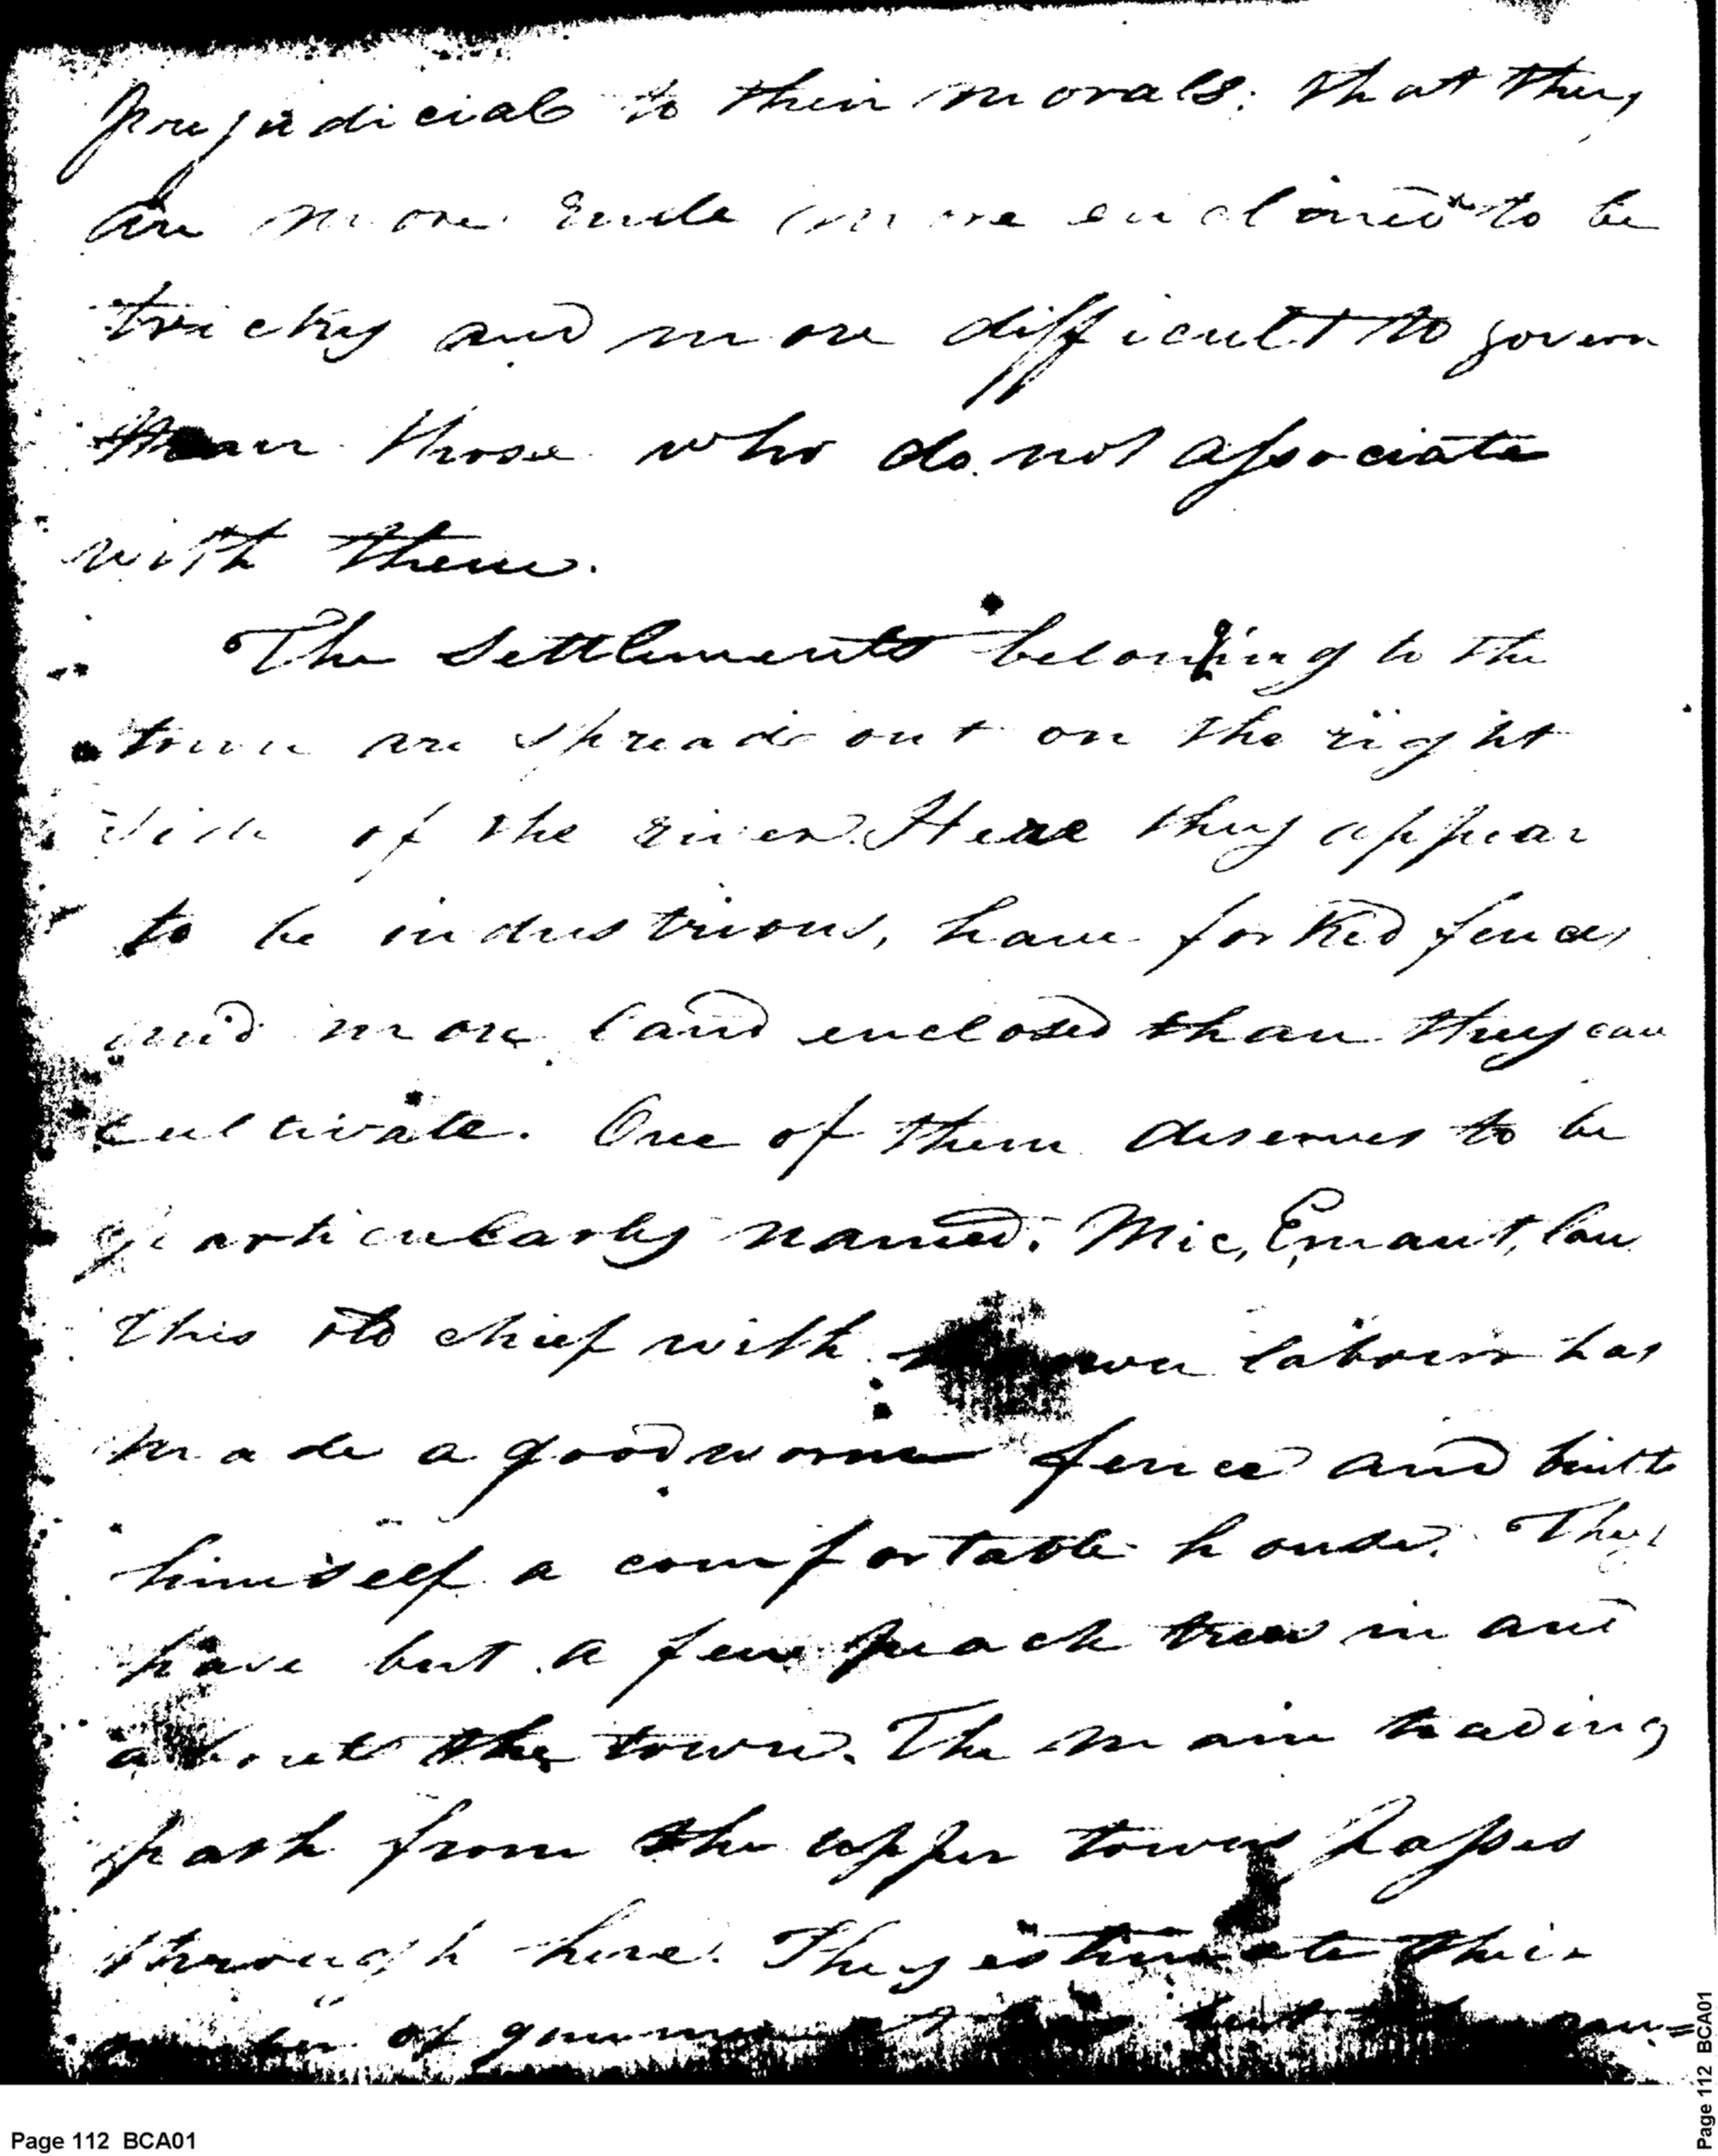 prejudicial to their morals; that they
are more rude more enclined to be
tricky and more difficult to govern
than those who do not associate
with them.
The settlements belonging to the
town are spread out on the right
side of the river. Here they appear
to be industrious, have forked fences
and more land enclosed than they can
cultivate. One of them deserves to be
particularly named. Mic, E,maut, lau
this old chief with own labour has
made a good worm fence and built
himself a comfortable house. They
have but a few peach trees in and
about the town. The main trading
path from the upper towns passes
through here. They estimate their
number of gunmen at but
Page 112 BCA01
Page 112 BCA01